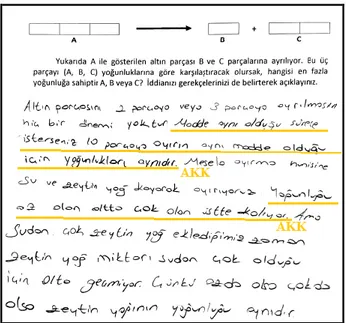 A B + C
Yukarıda A ile gösterilen altın parçası B ve C parçalarına ayrılıyor. Bu üç
parçayı (A, B, C) yoğunluklarına göre karşılaştıracak olursak, hangisi en fazla
yoğunluğa sahiptir A, B veya C? İddianızı gerekçelerinizi de belirterek açıklayınız.
Altın parçasın 2 parçaya veya 3 parçaya ayrılmasın
hiç bir önemi yoktur Madde aynı olduğu sürece
isterseniz 10 parçaya ayırın aynı madde olduğu
için yoğunlukları aynıdır. Mesela ayırma hunisine
AKK
Su ve zeytin yağ koyarak ayırıyoruz Yoğunluğu
az olan altta çok olan üstte kalıyor. Ama
AKK
Sudan çok zeytin yağ eklediğimiz zaman
zeytin yağ miktarı sudan çok olduğu
için alta geçmiyor. Çünkü azda olsa çokda
olsa zeytin yağının yoğunluğu aynıdır